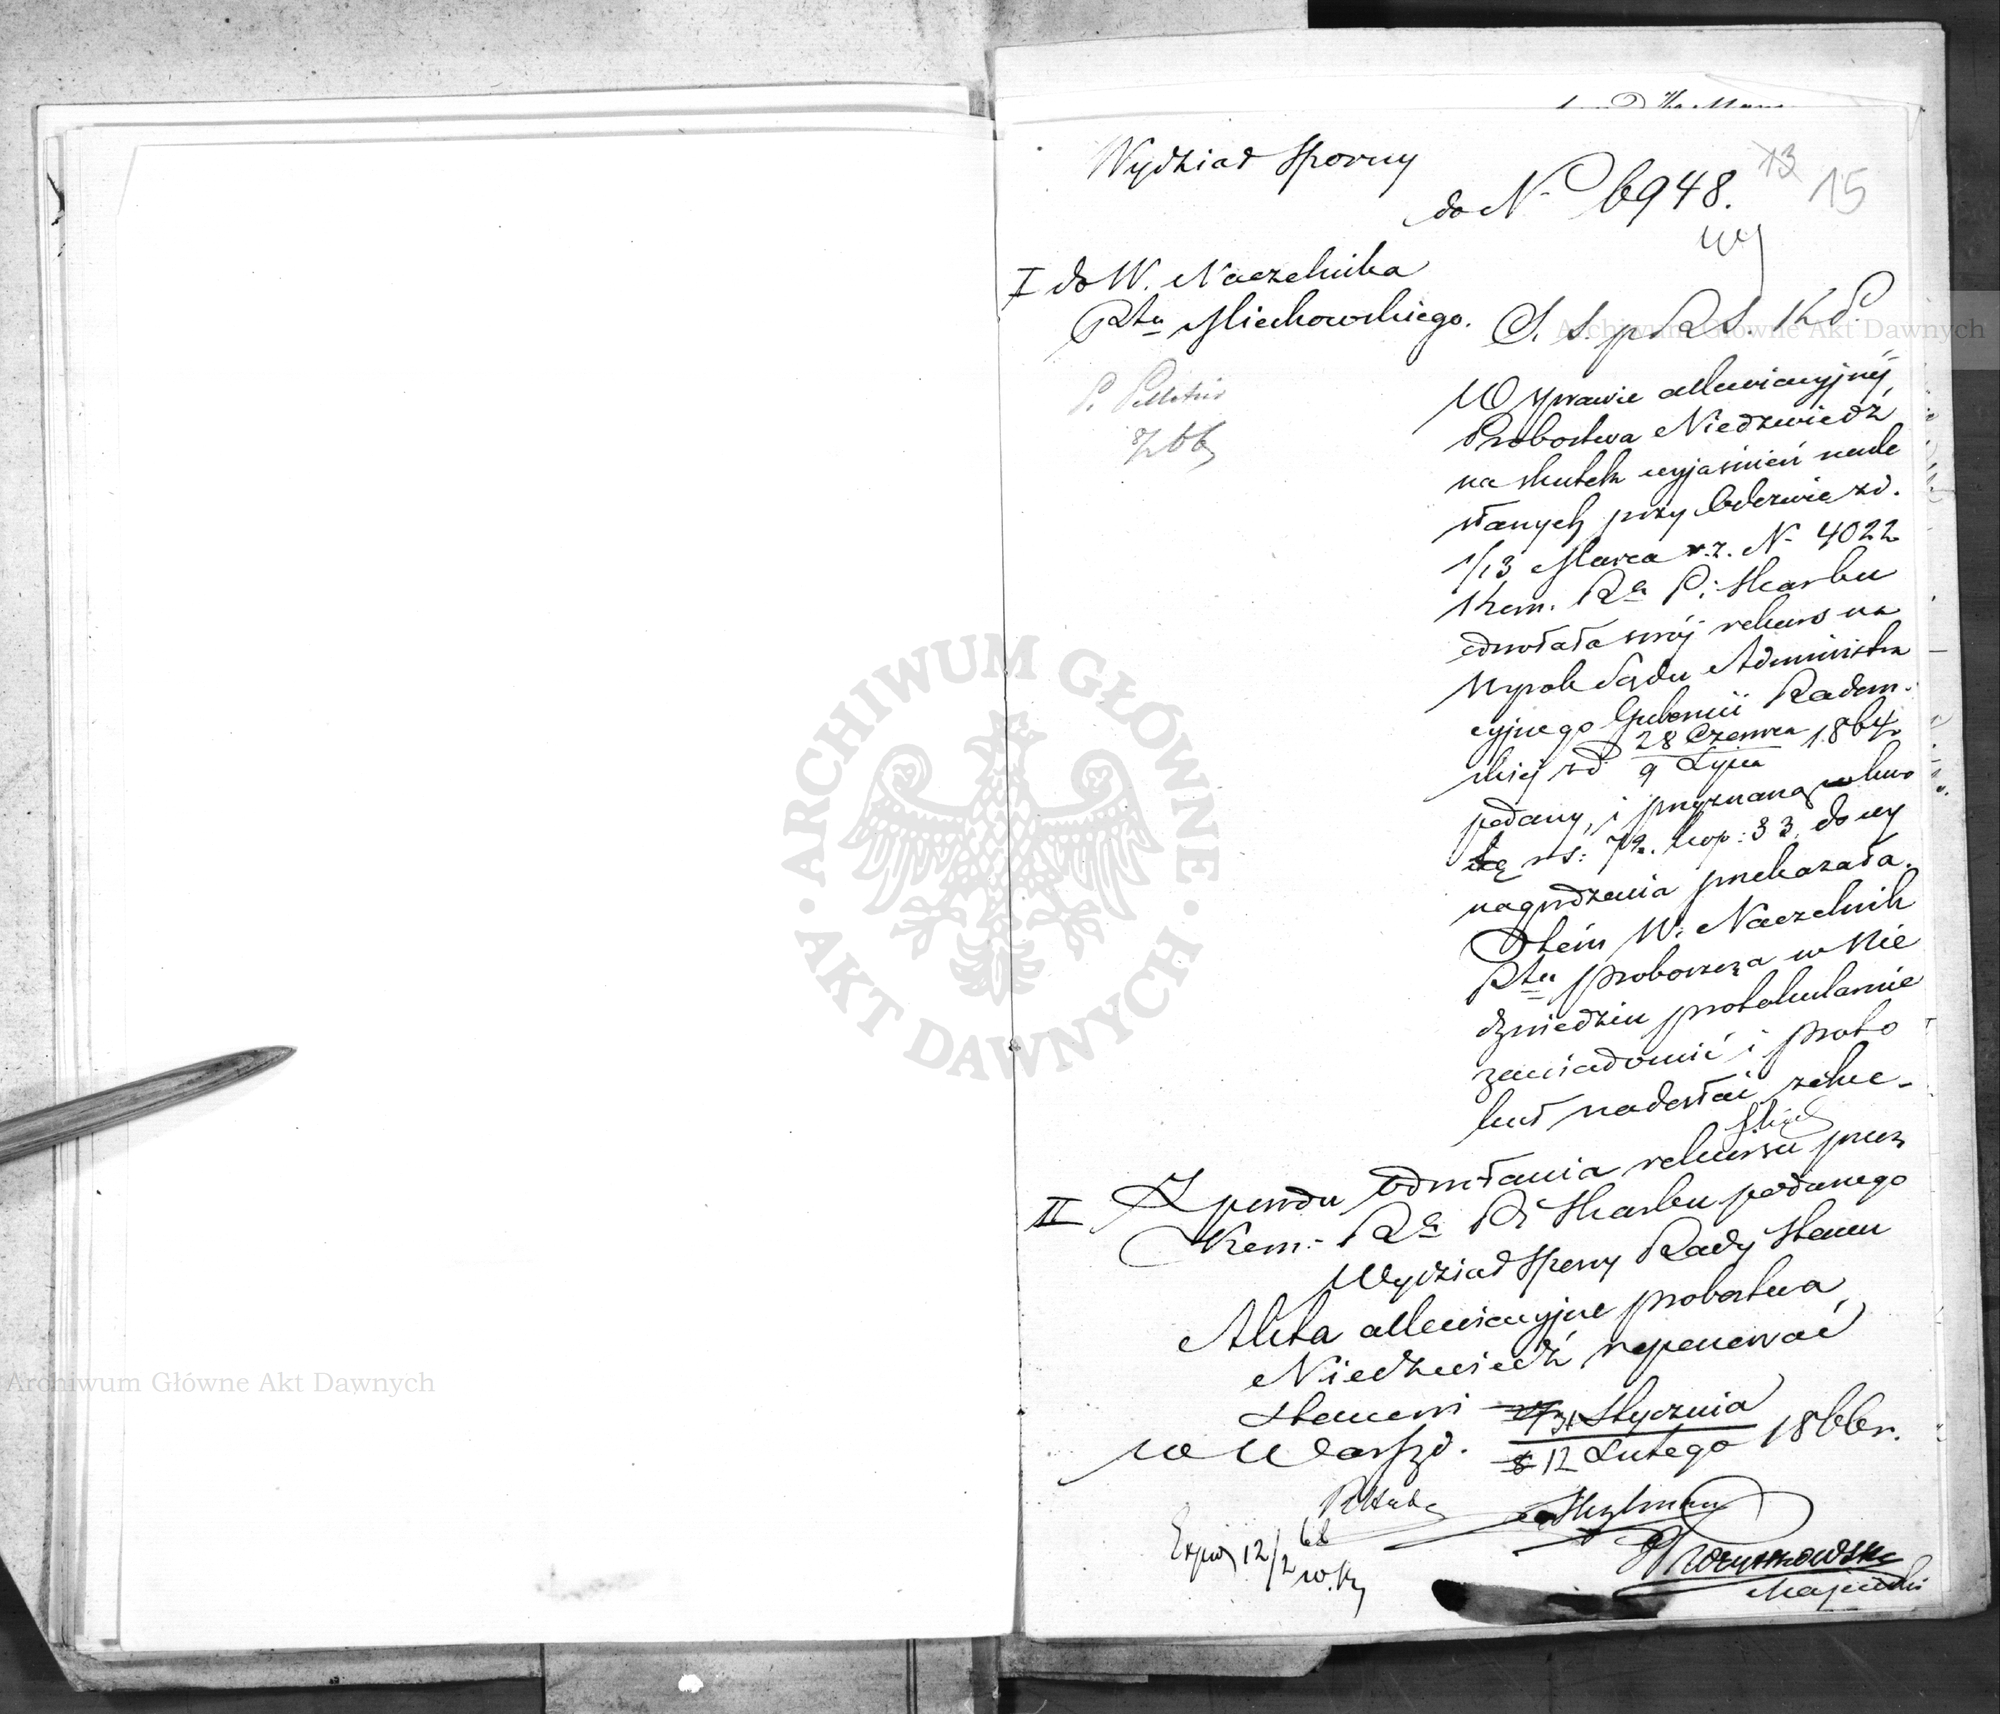 Wydział Sporny
do N 6948.
13
15
I do W. Naczelnika
Ptu Miechowskiego.
S. s. p R S. K P.
8/2 66
W sprawie allewiacyjnéj
Probostwa Niedzwiedź
na skutek wyjaśnień nade
słanych przy Odezwie zd.
1/13 Marca r. z. N 4022
Kom. Ra P. Skarbu
odwołała swój rekurs na
Wyrok Sądu Administra
cyjnego Gubernii Radom-
skiej z d 28 Czerwca / 9 Lipca 1864 r.
podany, i przyznaną kwo
tę rs: 72. kop: 33. do wy
nagrodzenia przekazała.
O tém W. Naczelnik
Ptu proboszcza w Nie
dzwiedziu protokularnie
zawiadomić i proto
kuł nadesłać zechce.
II Z powodu odwołania rekursu przez
Kom. Ra P. Skarbu podanego
Wydział Sporny Rady Stanu
Akta allewiacyjne probostwa
Niedzwiedź reponować
stanowi
w Warsz d. 31 Stycznia / 12 Lutego 1866 r.
Exped 12/2 66
Majewski
ARCHIWUM GŁÓWNE AKT DAWNYCH
Archiwum Główne Akt Dawnych
Archiwum Główne Akt Dawnych